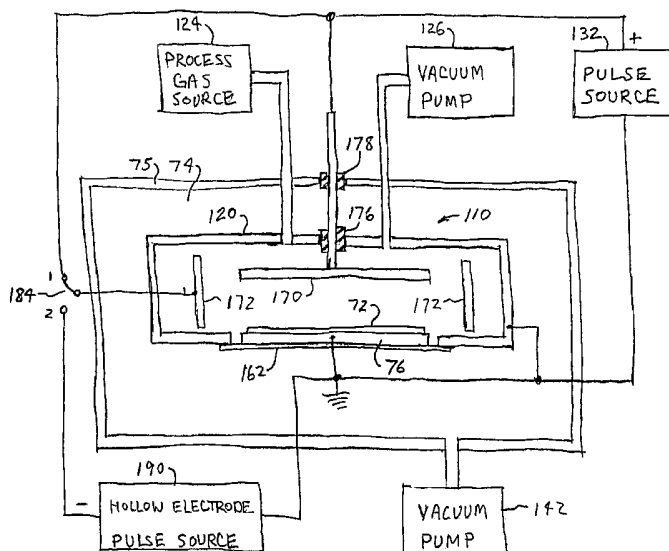 124
PROCESS
GAS
SOURCE
126
VACUUM
PUMP
132
+
PULSE
SOURCE
178
75
74
176
120
110
1
184
2
172
170
72
172
162
76
190
-
HOLLOW ELECTRODE
PULSE SOURCE
VACUUM
PUMP
142